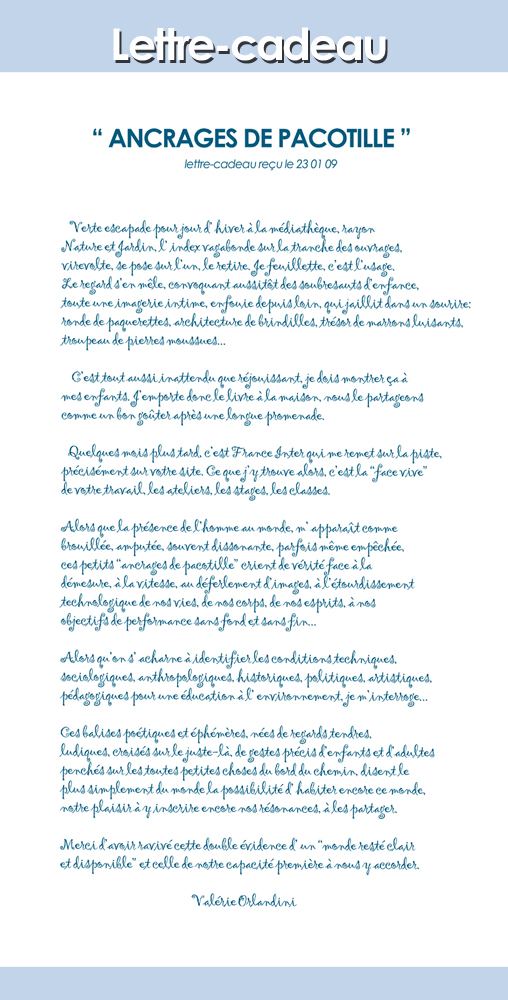 Lettre-cadeau
“ ANCRAGES DE PACOTILLE ”
lettre-cadeau reçu le 23 01 09
Verte escapade pour jour d' hiver à la médiathèque, rayon
Nature et Jardin, l' index vagabonde sur la tranche des ouvrages,
virevolte, se pose sur l'un, le retire. Je feuillette, c'est l'usage.
Le regard s'en mêle, convoquant aussitôt des soubresauts d'enfance,
toute une imagerie intime, enfouie depuis loin, qui jaillit dans un sourire:
ronde de paquerettes, architecture de brindilles, trésor de marrons luisants,
troupeau de pierres moussues...
C'est tout aussi inattendu que réjouissant, je dois montrer ça à
mes enfants. J'emporte donc le livre à la maison, nous le partageons
comme un bon goûter après une longue promenade.
Quelques mois plus tard, c'est France Inter qui me remet sur la piste,
précisément sur votre site. Ce que j'y trouve alors, c'est la "face vive"
de votre travail, les ateliers, les stages, les classes.
Alors que la présence de l'homme au monde, m' apparaît comme
brouillée, amputée, souvent dissonante, parfois même empêchée,
ces petits "ancrages de pacotille" crient de vérité face à la
démesure, à la vitesse, au déferlement d'images, à l'étourdissement
technologique de nos vies, de nos corps, de nos esprits, à nos
objectifs de performance sans fond et sans fin...
Alors qu'on s' acharne à identifier les conditions techniques,
sociologiques, anthropologiques, historiques, politiques, artistiques,
pédagogiques pour une éducation à l' environnement, je m'interroge...
Ces balises poétiques et éphémères, nées de regards tendres,
ludiques, croisés sur le juste-là, de gestes précis d'enfants et d'adultes
penchés sur les toutes petites choses du bord du chemin, disent le
plus simplement du monde la possibilité d' habiter encore ce monde,
notre plaisir à y inscrire encore nos résonances, à les partager.
Merci d'avoir ravivé cette double évidence d' un "monde resté clair
et disponible" et celle de notre capacité première à nous y accorder.
Valérie Orlandini